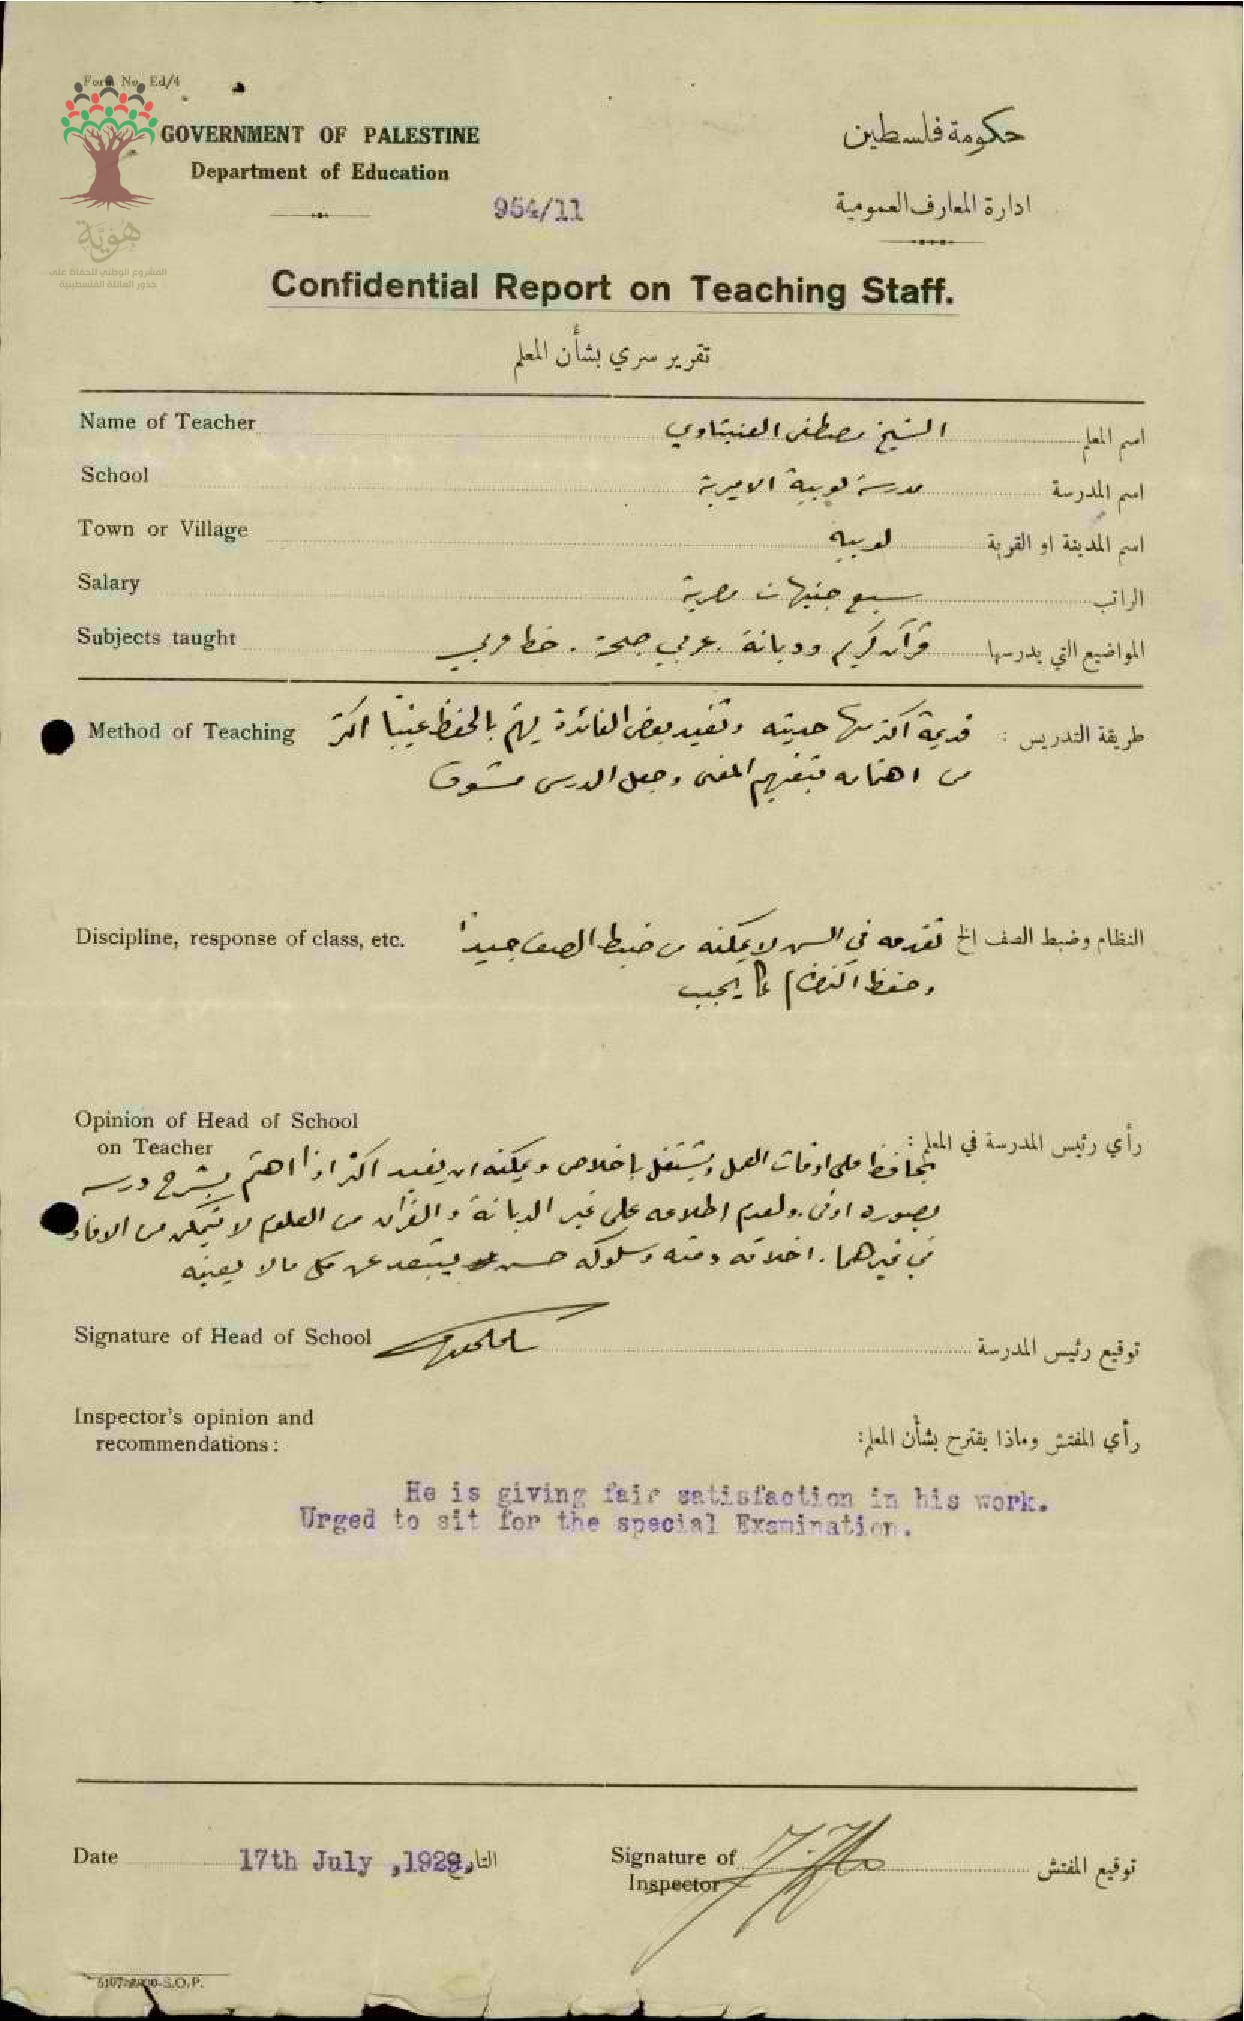 Form No. Ed/4
GOVERNMENT OF PALESTINE
Department of Education
حكومة فلسطين
ادارة المعارف العمومية
964/11
هُوِيَّة
المشروع الوطني للحفاظ على
جذور العائلة الفلسطينية
Confidential Report on Teaching Staff.
تقرير سري بشأن المعلم
Name of Teacher الشيخ مصطفى العنبتاوي اسم المعلم
School مدرسة لوبية الاميرية اسم المدرسة
Town or Village لوبية اسم المدينة او القرية
Salary سبع جنيهات مصرية الراتب
Subjects taught قرآن كريم وديانة . عربي صحة . خط عربي المواضيع التي يدرسها
Method of Teaching طريقة التدريس : قديمة اكثر منها حديثه وتفيد بعض الفائدة يهتم بالحفظ غيبًا اكثر
من اهتمامه بتفهيم المعنى وجعل الدرس مشوق
Discipline, response of class, etc. النظام وضبط الصف الخ تقدمه في السن لا يمكنه من ضبط الصف جيدًا
وحفظ النظام كما يجب
Opinion of Head of School
on Teacher
رأي رئيس المدرسة في المعلم :
يحافظ على اوقات العمل ويشتغل باخلاص ويمكنه ان يفيد اكثر اذا اهتم بشرح درسه
بصوره اوفى ولعدم اطلاعه على غير الديانة والقرآن من العلوم لا يتمكن من الافاده
في غيرهما . اخلاقه متينه وسلوكه حسن يبتعد عن كل ما لا يعنيه
Signature of Head of School توقيع رئيس المدرسة
Inspector's opinion and
recommendations :
رأي المفتش وماذا يقترح بشأن المعلم:
He is giving fair satisfaction in his work.
Urged to sit for the special Examination.
Date 17th July ,1929, التاريخ
Signature of
Inspector
توقيع المفتش
S.O.P.